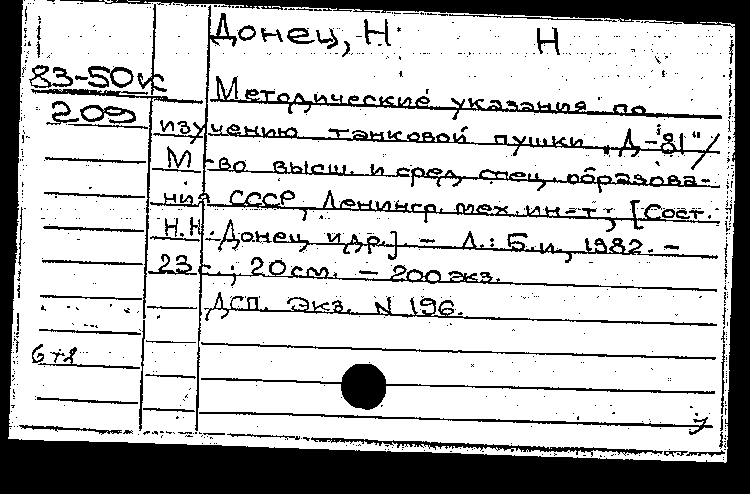 Донец, Н. Н
83-50к
209
Методические указания по
изучению танковой пушки „Д-81"/
М-во высш. и сред. спец. образова-
ния СССР, Ленингр. мех. ин-т; [Сост.
Н.Н. Донец и др.] - Л.: Б.и., 1982. -
23с.; 20см. - 200 экз.
ДСП. Экз. N 196.